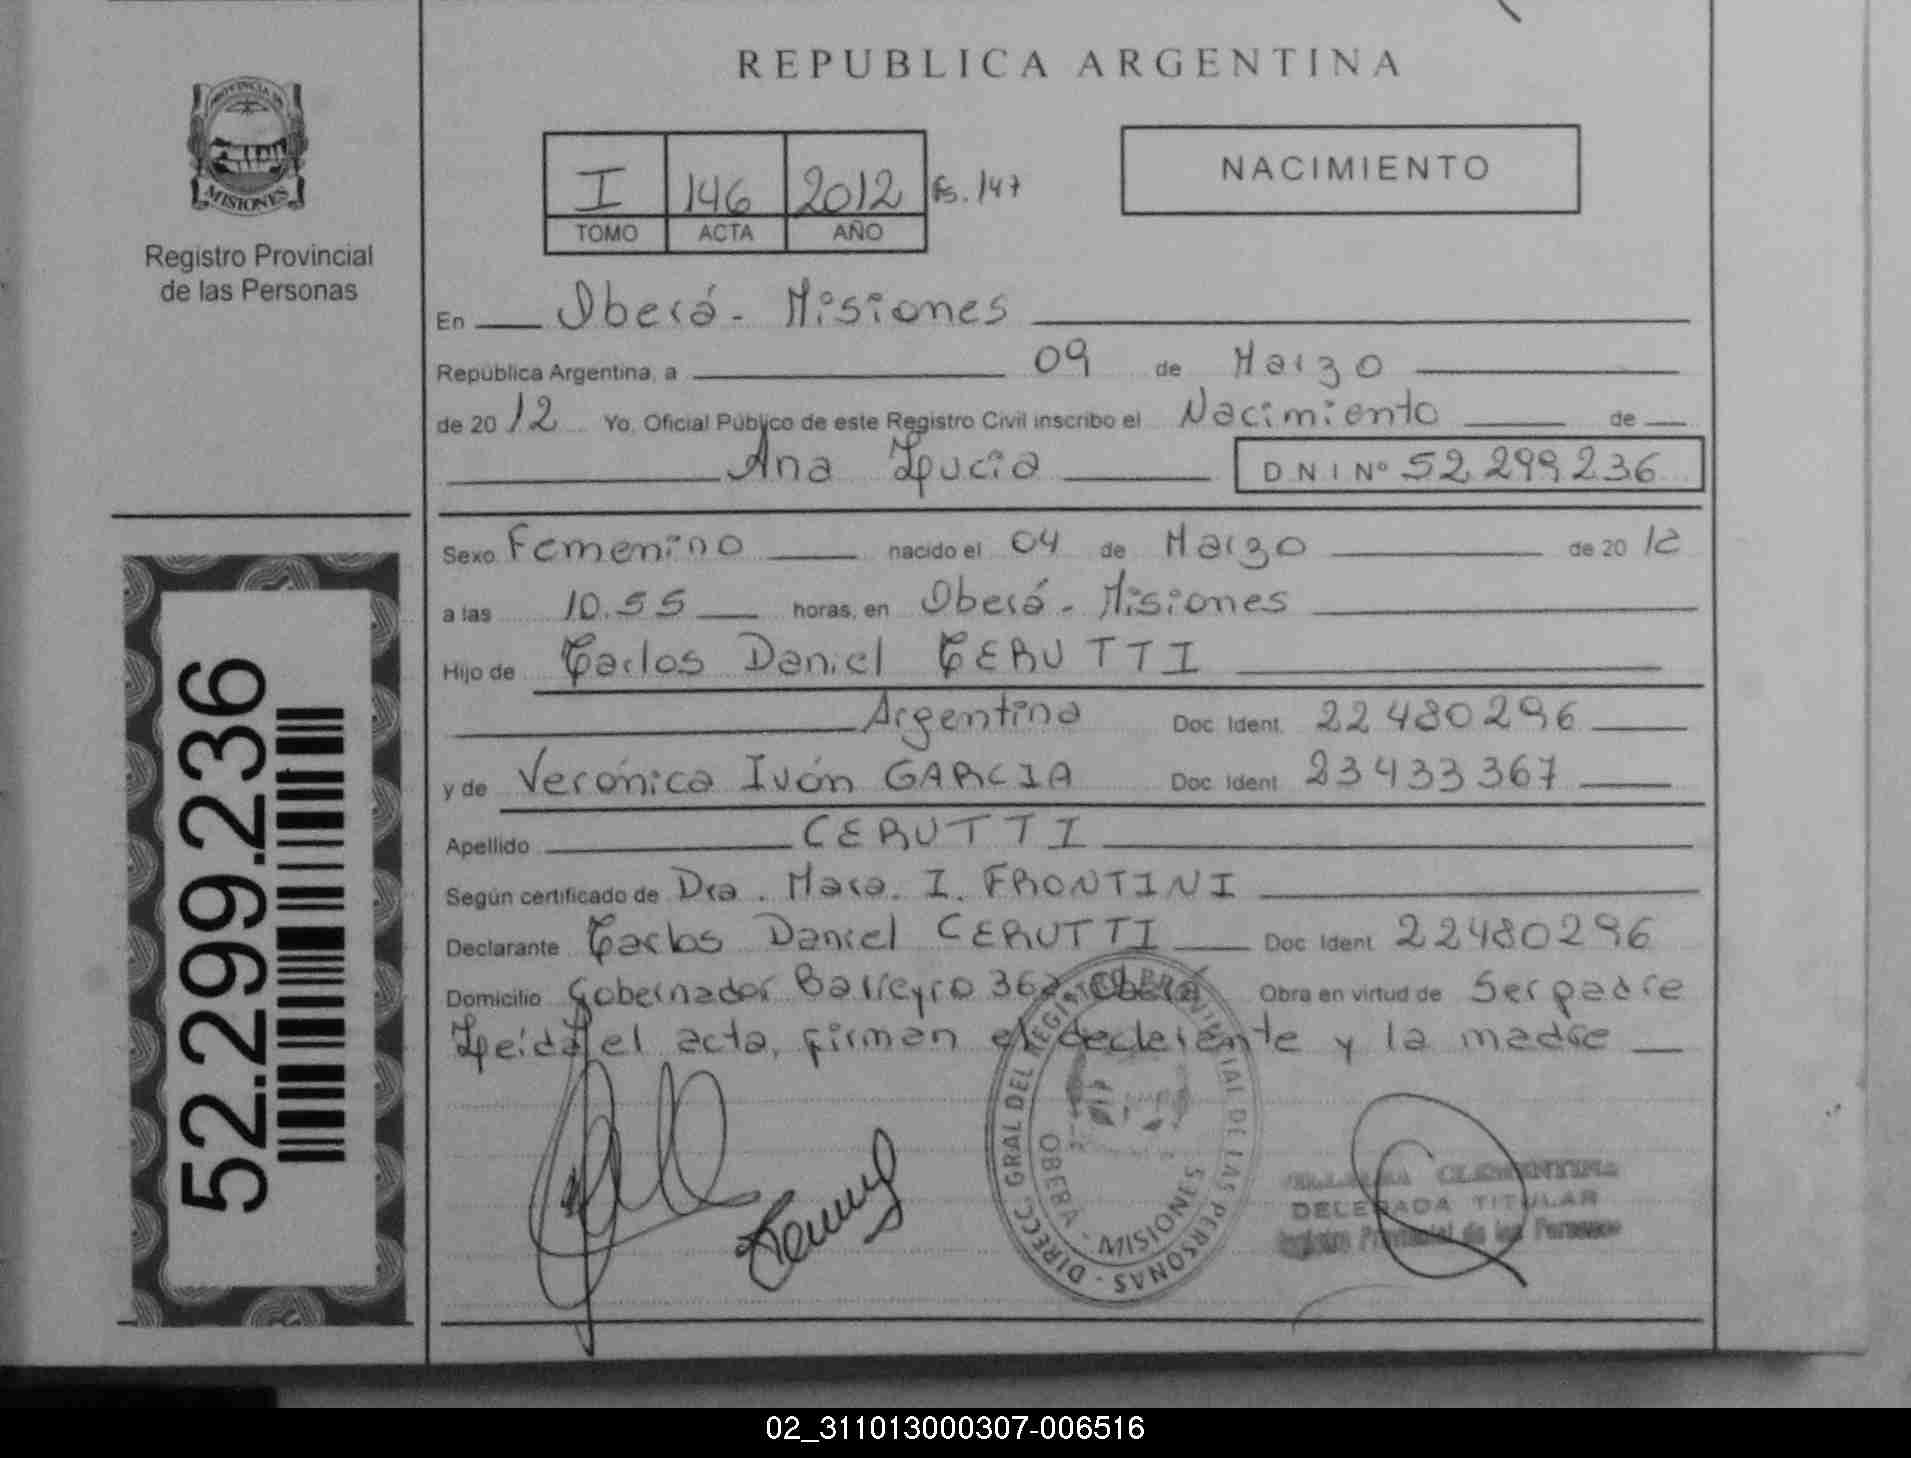 REPUBLICA ARGENTINA
PROVINCIA DE
MISIONES
Registro Provincial
de las Personas
I 146 2012 Fs. 147
TOMO ACTA AÑO
NACIMIENTO
En Oberá - Misiones
República Argentina, a 09 de Marzo
de 2012 Yo, Oficial Público de este Registro Civil inscribo el Nacimiento de
Ana Lucia DNI Nº 52.299.236
Sexo Femenino nacido el 04 de Marzo de 2012
a las 10.55 horas, en Oberá - Misiones
Hijo de Carlos Daniel CERUTTI
Argentina Doc. Ident. 22480296
y de Verónica Ivón GARCIA Doc. Ident. 23433367
Apellido CERUTTI
Según certificado de Dra. Mara. I. FRONTINI
Declarante Carlos Daniel CERUTTI Doc. Ident. 22480296
Domicilio Gobernador Barreyro 362 Oberá Obra en virtud de Ser padre
Leída el acta, firman el declarante y la madre
52.299.236
DIRECC. GRAL DEL REGISTRO PROVINCIAL DE LAS PERSONAS
OBERÁ - MISIONES
CLEMENTINA
DELEGADA TITULAR
Registro Provincial de las Personas
02_311013000307-006516